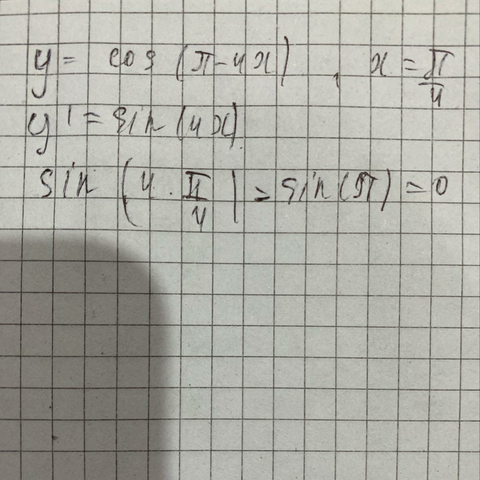 y = cos (π-4x), x = π/4
y' = sin (4x)
sin (4 · π/4) = sin(π) = 0